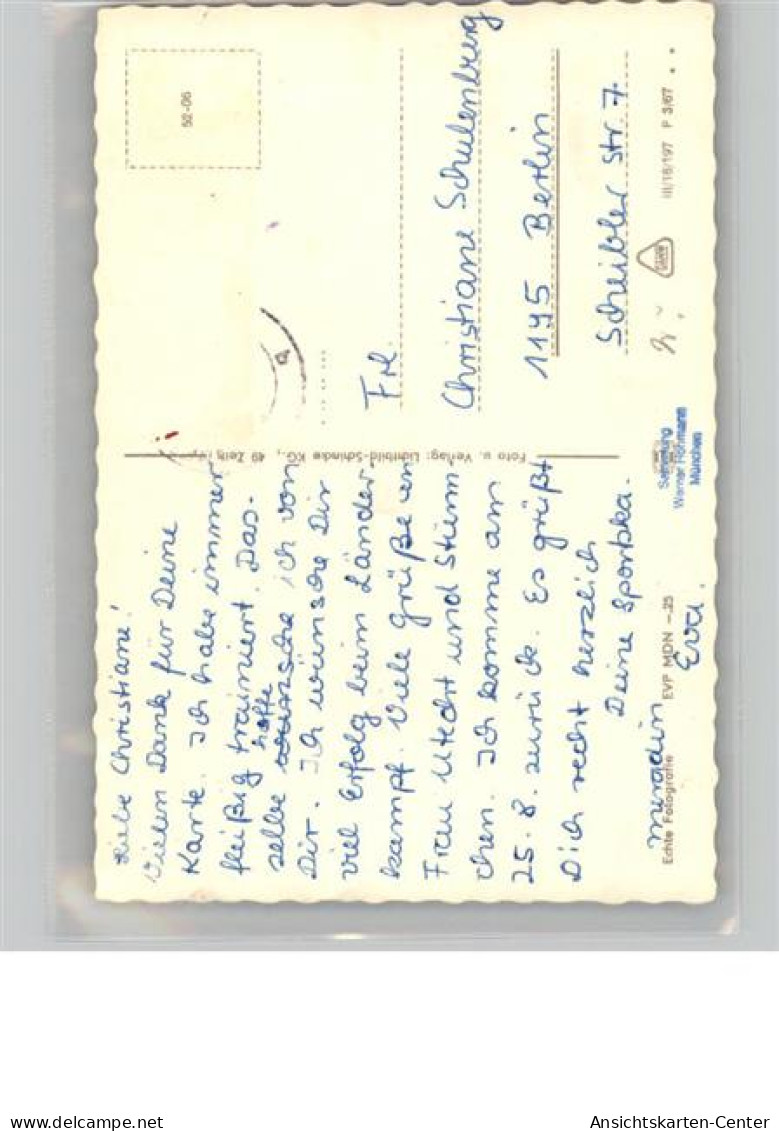 Liebe Christiane!
Vielen Dank für Deine
Karte. Ich habe immer
fleißig trainiert. Das-
selbe hoffe ich von
Dir. Ich wünsche Dir
viel Erfolg beim Länder
kampf. Viele Grüße an
Frau Utecht und Stürm
chen. Ich komme am
25.8. zurück. Es grüßt
Dich recht herzlich
Deine Sportska-
meradin
Eva.
Echte Fotografie EVP MDN -.25
Foto u. Verlag: Lichtbild-Schincke KG., 49 Zeitz
52-06
Frl.
Christiane Schulenburg
1195 Berlin
Scheibler str. 7
III/18/197 P 3/67
Sammlung
Werner Hofmann
München
delcampe.net
Ansichtskarten-Center